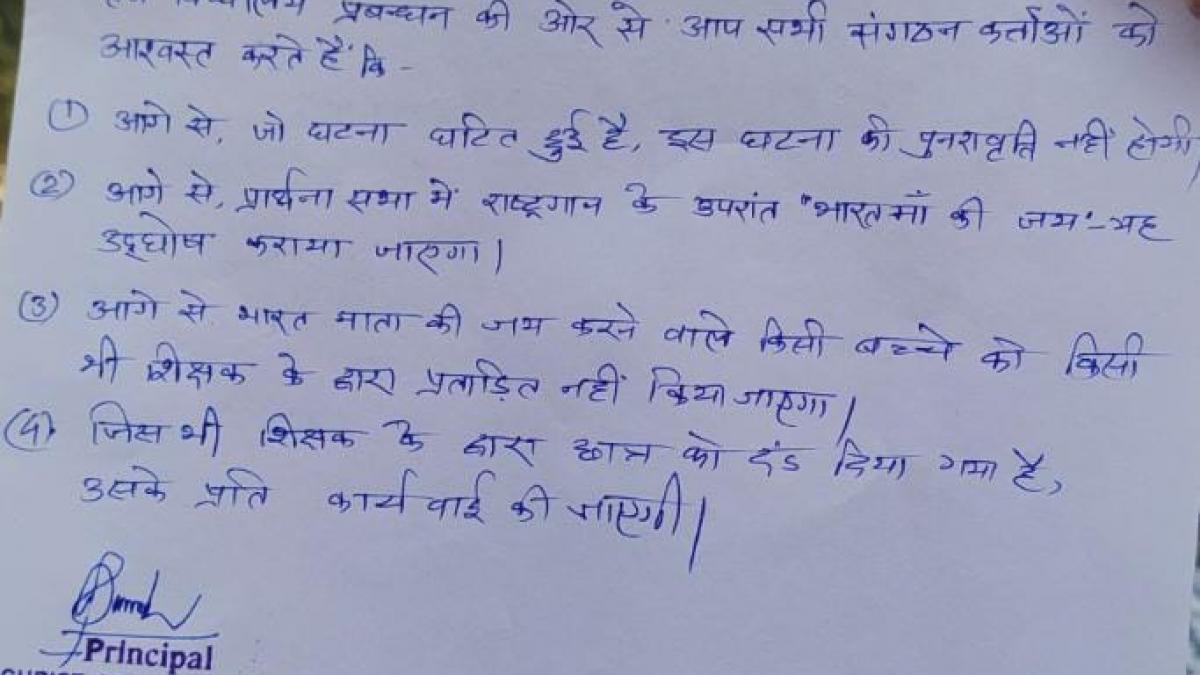 प्रबन्धन की ओर से आप सभी संगठन कर्ताओं को
आश्वस्त करते हैं कि -
(1) आगे से, जो घटना घटित हुई है, इस घटना की पुनरावृत्ति नहीं होगी
(2) आगे से, प्रार्थना सभा में राष्ट्रगान के उपरांत "भारत माँ की जय" - यह
उद्घोष कराया जाएगा।
(3) आगे से भारत माता की जय करने वाले किसी बच्चे को किसी
भी शिक्षक के द्वारा प्रताड़ित नहीं किया जाएगा।
(4) जिस भी शिक्षक के द्वारा छात्र को दंड दिया गया है,
उसके प्रति कार्यवाई की जाएगी।
Principal